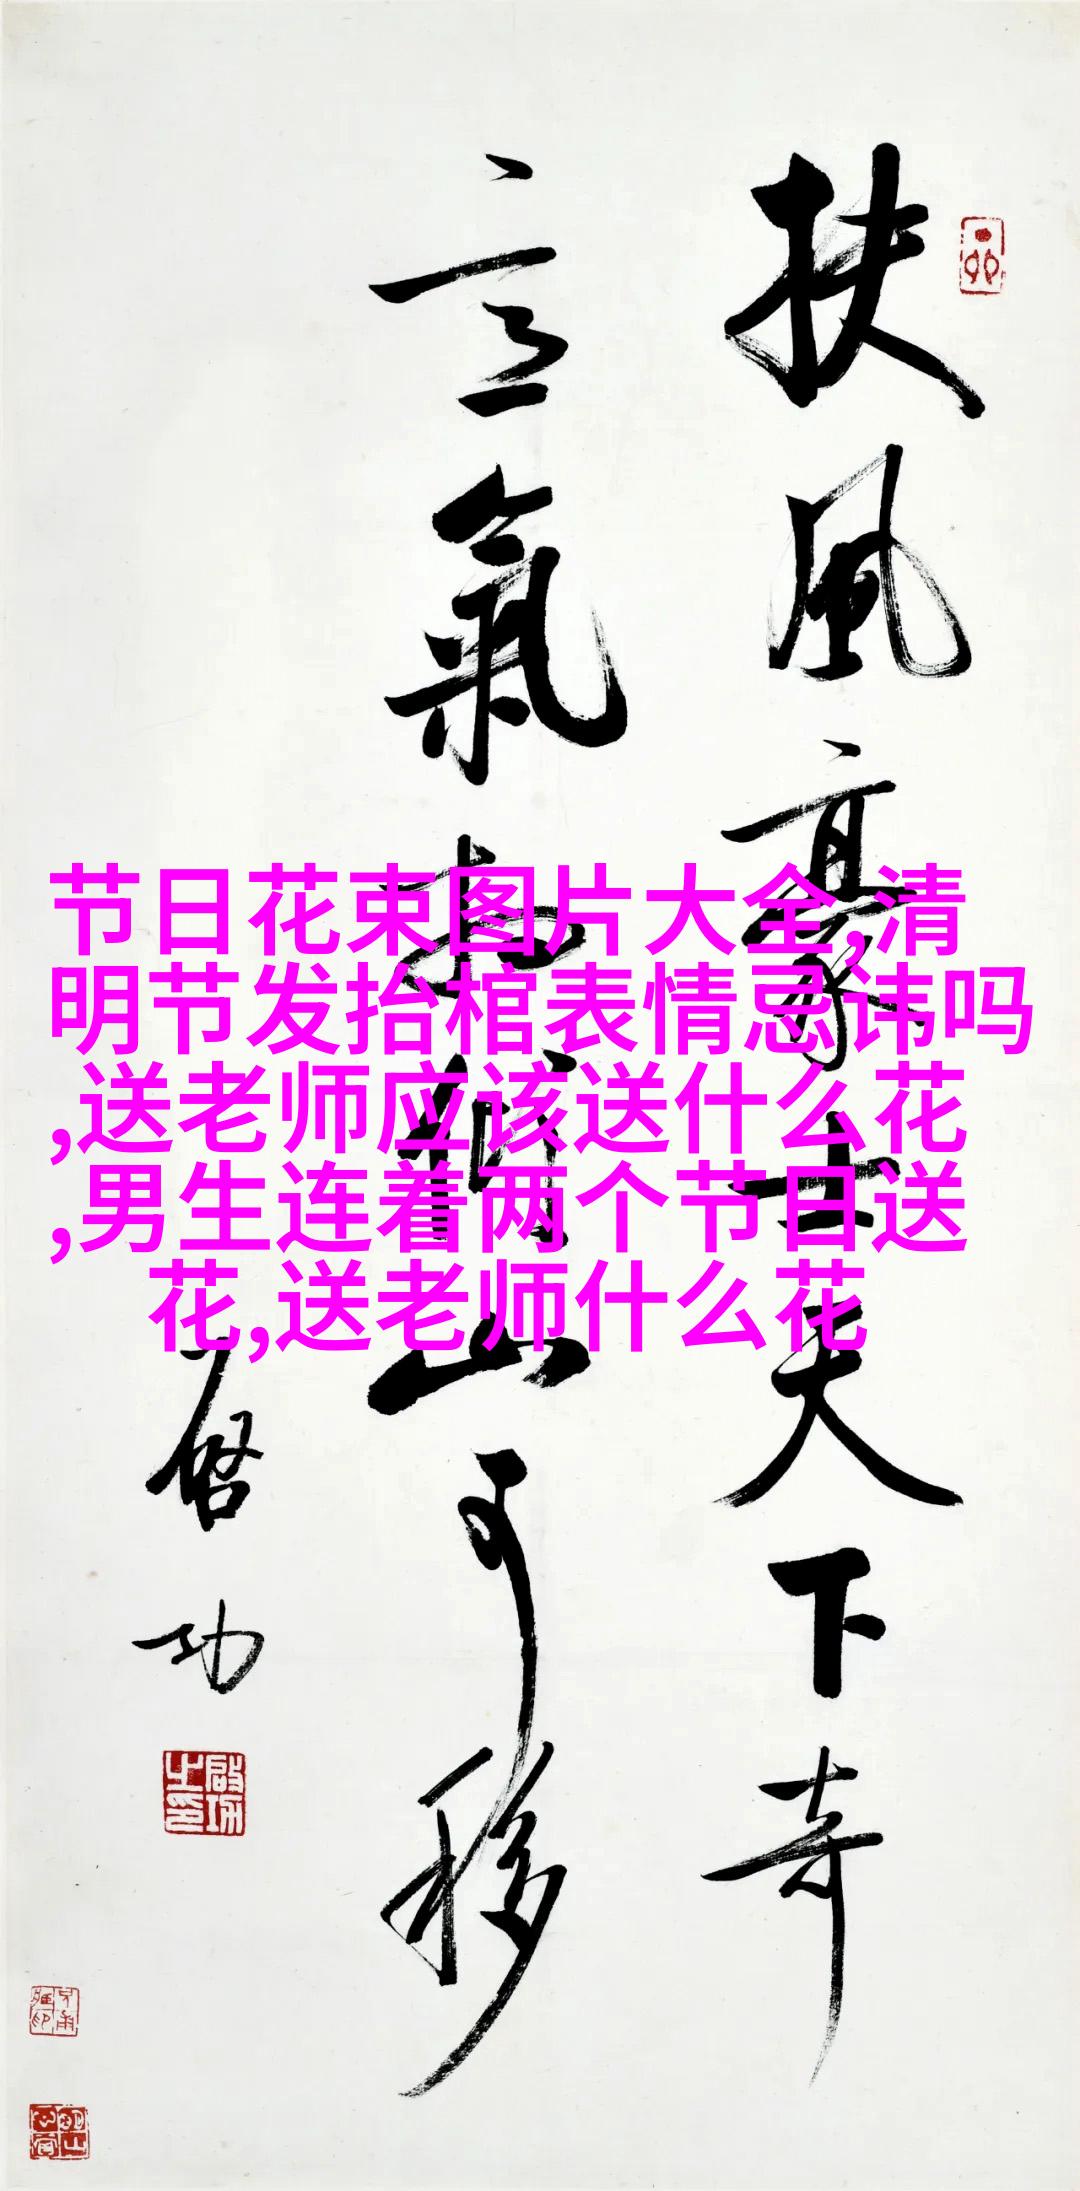 扶風豪士天下奇
意氣相傾山可移
啓功
啟功之印
节日花束图片大全,清
明节发抬棺表情忌讳吗
,送老师应该送什么花
,男生连着两个节日送
花,送老师什么花